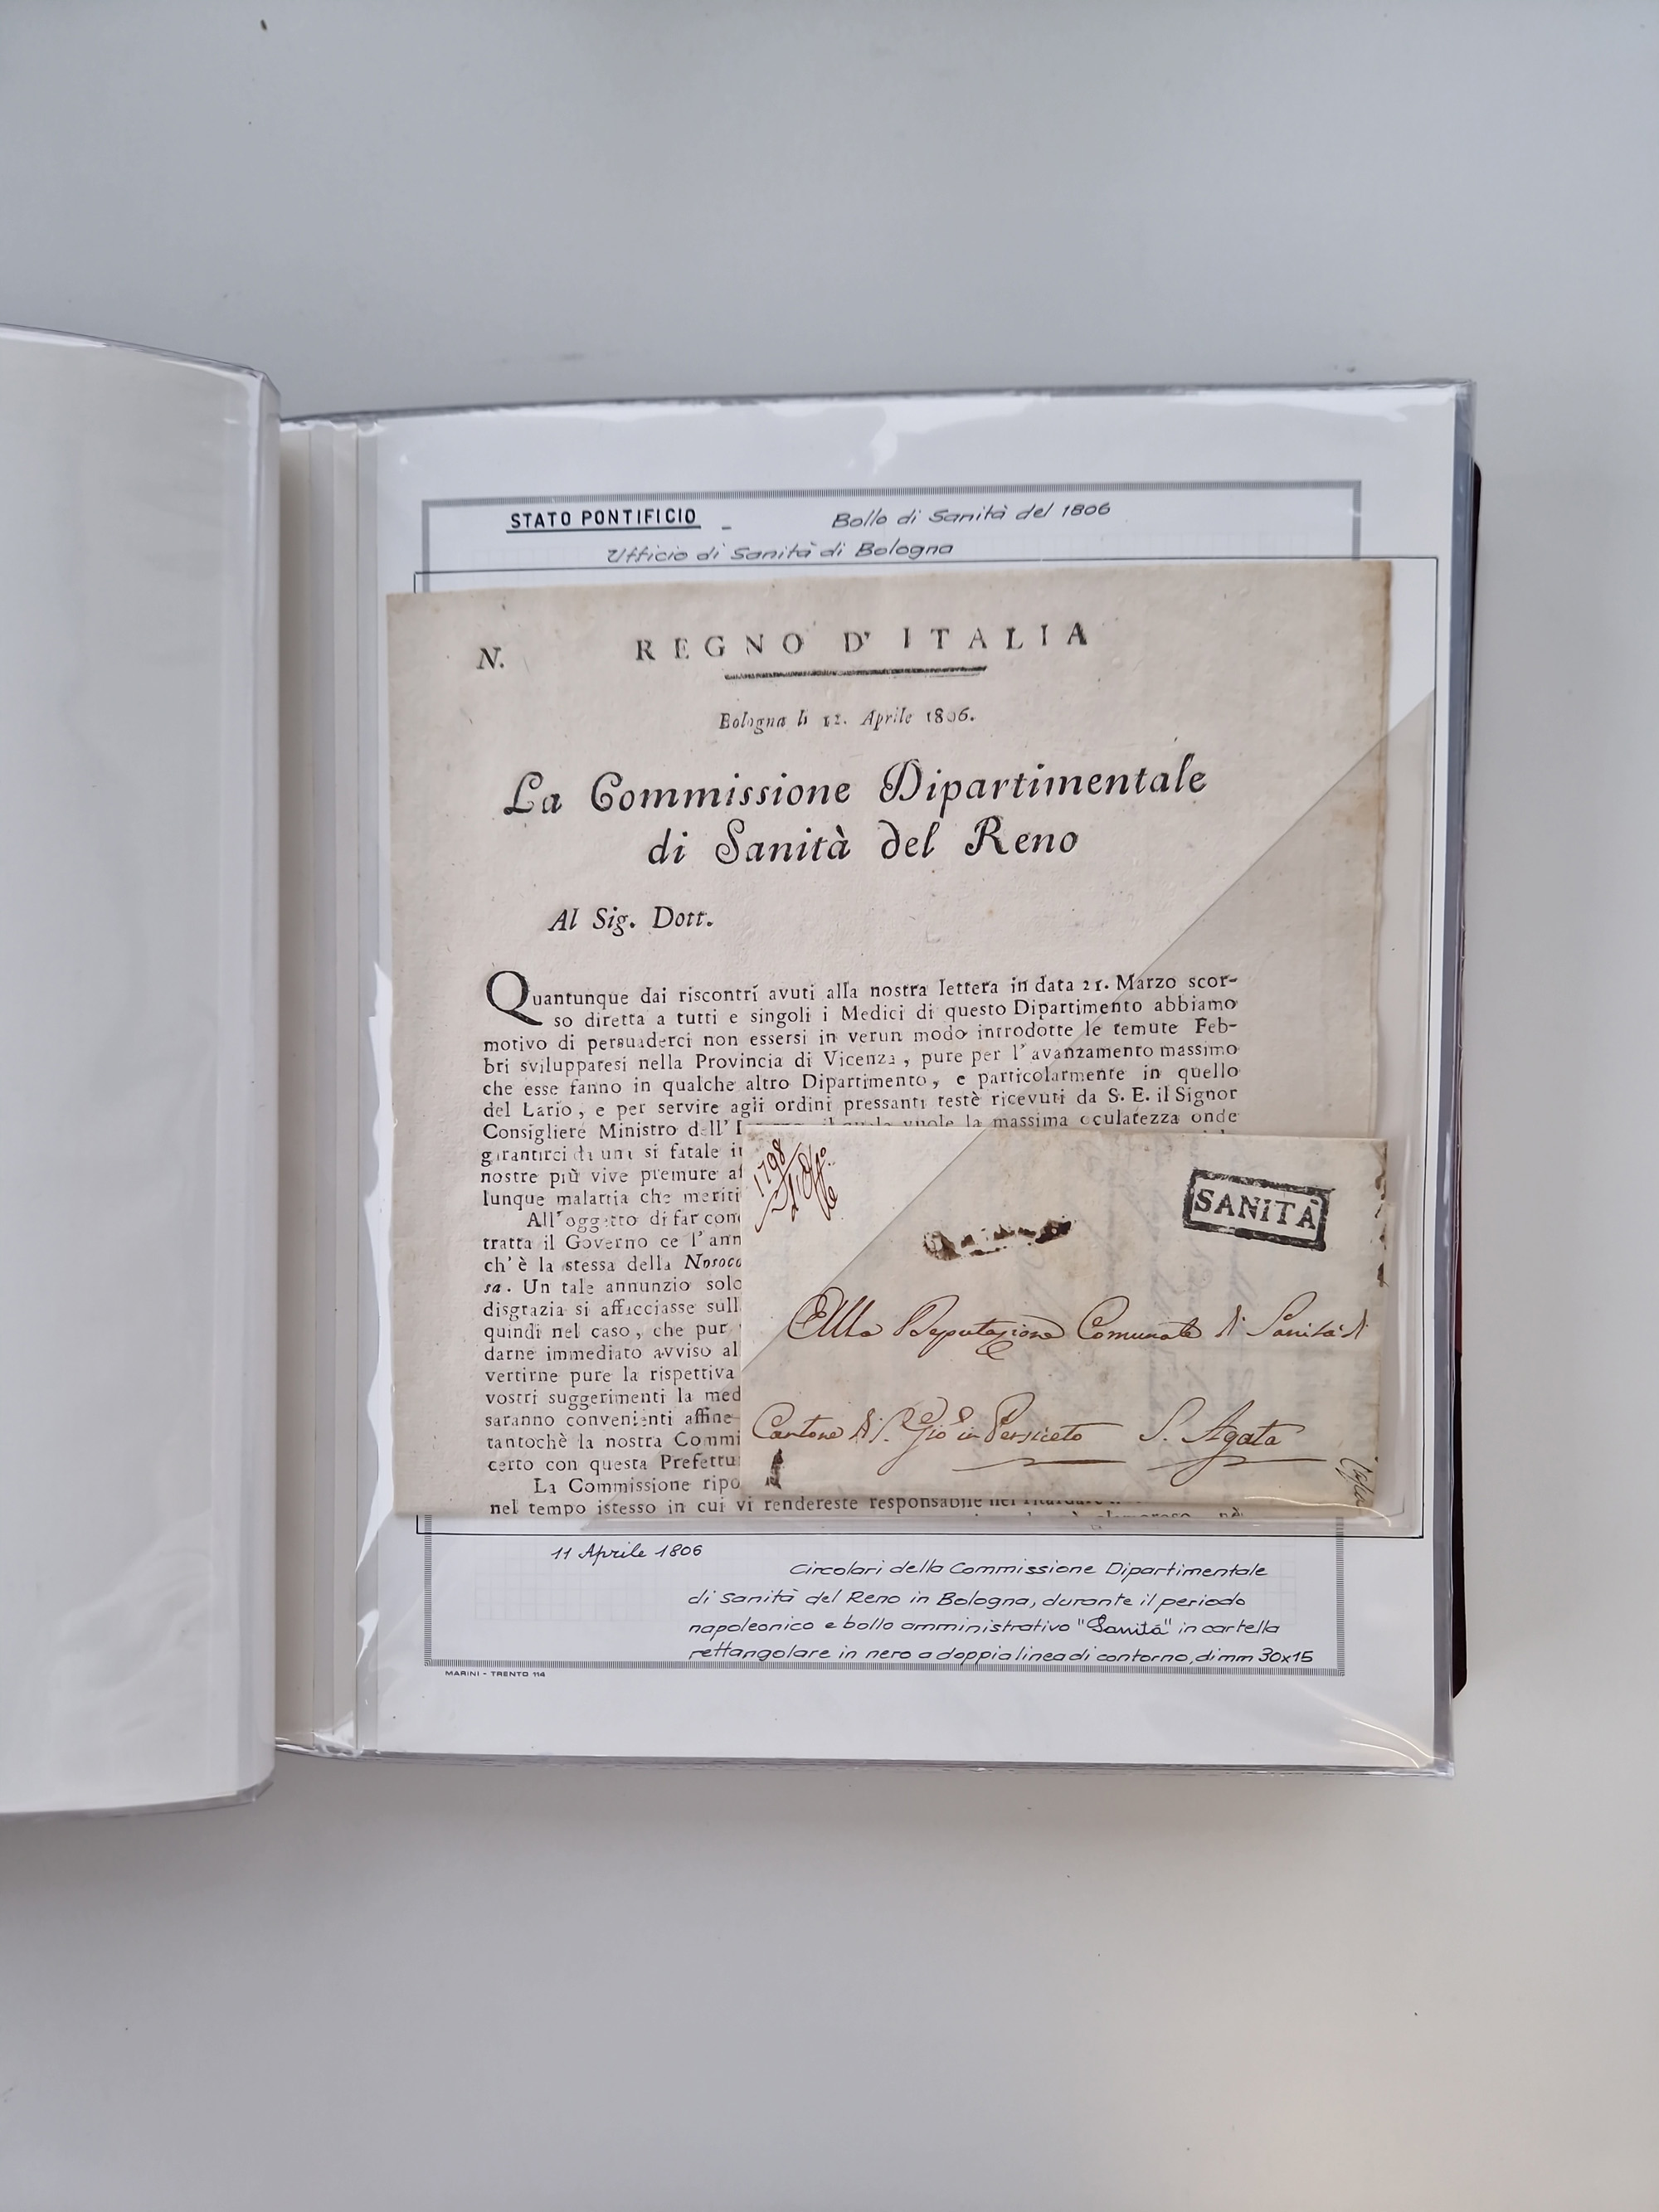 STATO PONTIFICIO - Bollo di Sanità del 1806
Ufficio di Sanità di Bologna
N. REGNO D' ITALIA
Bologna li 12. Aprile 1806.
La Commissione Dipartimentale
di Sanità del Reno
Al Sig. Dott.
Quantunque dai riscontri avuti alla nostra lettera in data 21. Marzo scor-
so diretta a tutti e singoli i Medici di questo Dipartimento abbiamo
motivo di persuaderci non essersi in verun modo introdotte le temute Feb-
bri svilupparesi nella Provincia di Vicenza, pure per l' avanzamento massimo
che esse fanno in qualche altro Dipartimento, e particolarmente in quello
del Lario, e per servire agli ordini pressanti testè ricevuti da S. E. il Signor
Consigliere Ministro dell' il quale vuole la massima oculatezza onde
garantirci di una si fatale
nostre più vive premure
lunque malattia che meriti
All' oggetto di far
tratta il Governo ce l'
ch' è la stessa della
sa. Un tale annunzio
disgrazia si affacciasse
quindi nel caso, che pur
darne immediato avviso
vertirne pure la rispettiva
vostri suggerimenti la
saranno convenienti affine
tantochè la nostra
certo con questa
La Commissione
nel tempo istesso in cui vi rendereste responsabile
1798
SANITÀ
Alla Deputazione Comunale di Sanità di
Cantone di S. Gio in Persiceto S. Agata
11 Aprile 1806
Circolari della Commissione Dipartimentale
di Sanità del Reno in Bologna, durante il periodo
napoleonico e bollo amministrativo "Sanità" in cartella
rettangolare in nero a doppia linea di contorno, di mm 30x15
MARINI - TRENTO 114